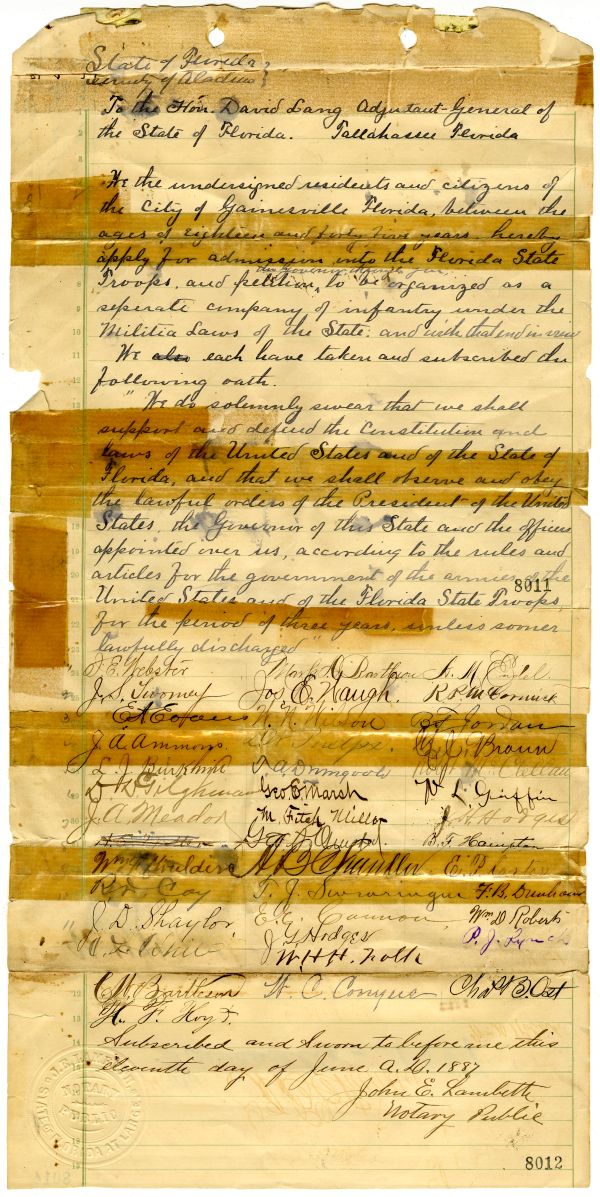 State of Florida }
County of Alachua }
To the Hon. David Lang Adjutant-General of
the State of Florida. Tallahassee Florida
We the undersigned residents and citizens of
the City of Gainesville Florida, between the
ages of Eighteen and forty five years, hereby
apply for admission into the Florida State
Troops, and petition, to be organized as a
seperate company of infantry under the
Militia Laws of the State: and with that end in view
We also each have taken and subscribed the
following oath.
"We do solemnly swear that we shall
support and defend the Constitution and
laws of the United States and of the State of
Florida, and that we shall observe and obey
the lawful orders of the President of the United
States, the Governor of this State and the officers
appointed over us, according to the rules and
articles for the government of the armies of the
8011
United States and of the Florida State Troops,
for the period of three years, unless sooner
lawfully discharged"
J. E. Webster
J. S. Twomey Jos E. Waugh. R P McCormick
W. N. Wilson B F Jordan
J. A. Ammons. Braun
L J Burkhim
Geo E. Marsh W. L. Griffin
J. A. Meador M. Fitch Miller J. H. Hodges
B. F. Hampton
A B Chandler
T. J. Swearingen F. B. Dunham
J. D. Shaylor, E. G. Cannon Wm D Roberts
J G Hodges P. J. Lynch
W. H. H.
C. M. Bartleson Chas B. Ost
H. F. Hoyt.
Subscribed and Sworn to before me this
eleventh day of June A.D. 1887
John E. Lambeth
Notary Public
NOTARY
PUBLIC
8012